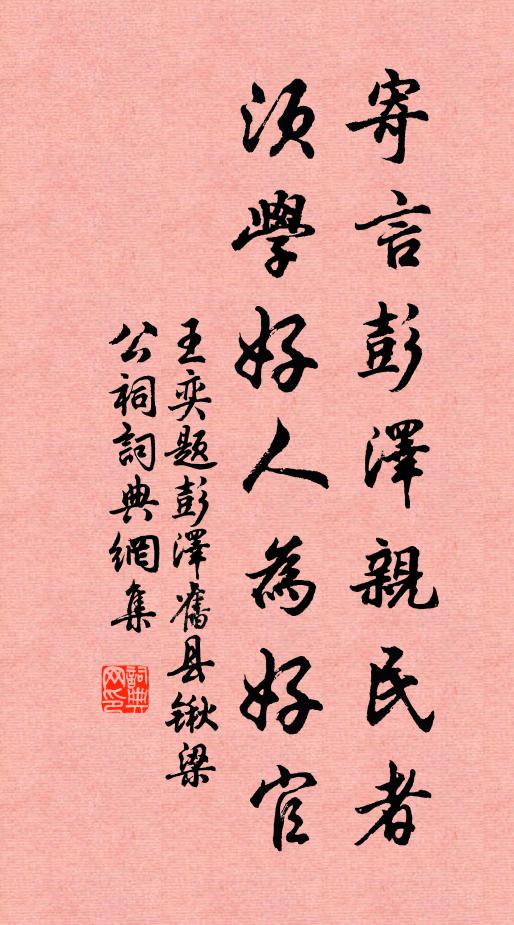 寄言彭澤親民者
須學好人為好官
王奕題彭澤舊县锹梁
公祠詞典網集
詞典网印